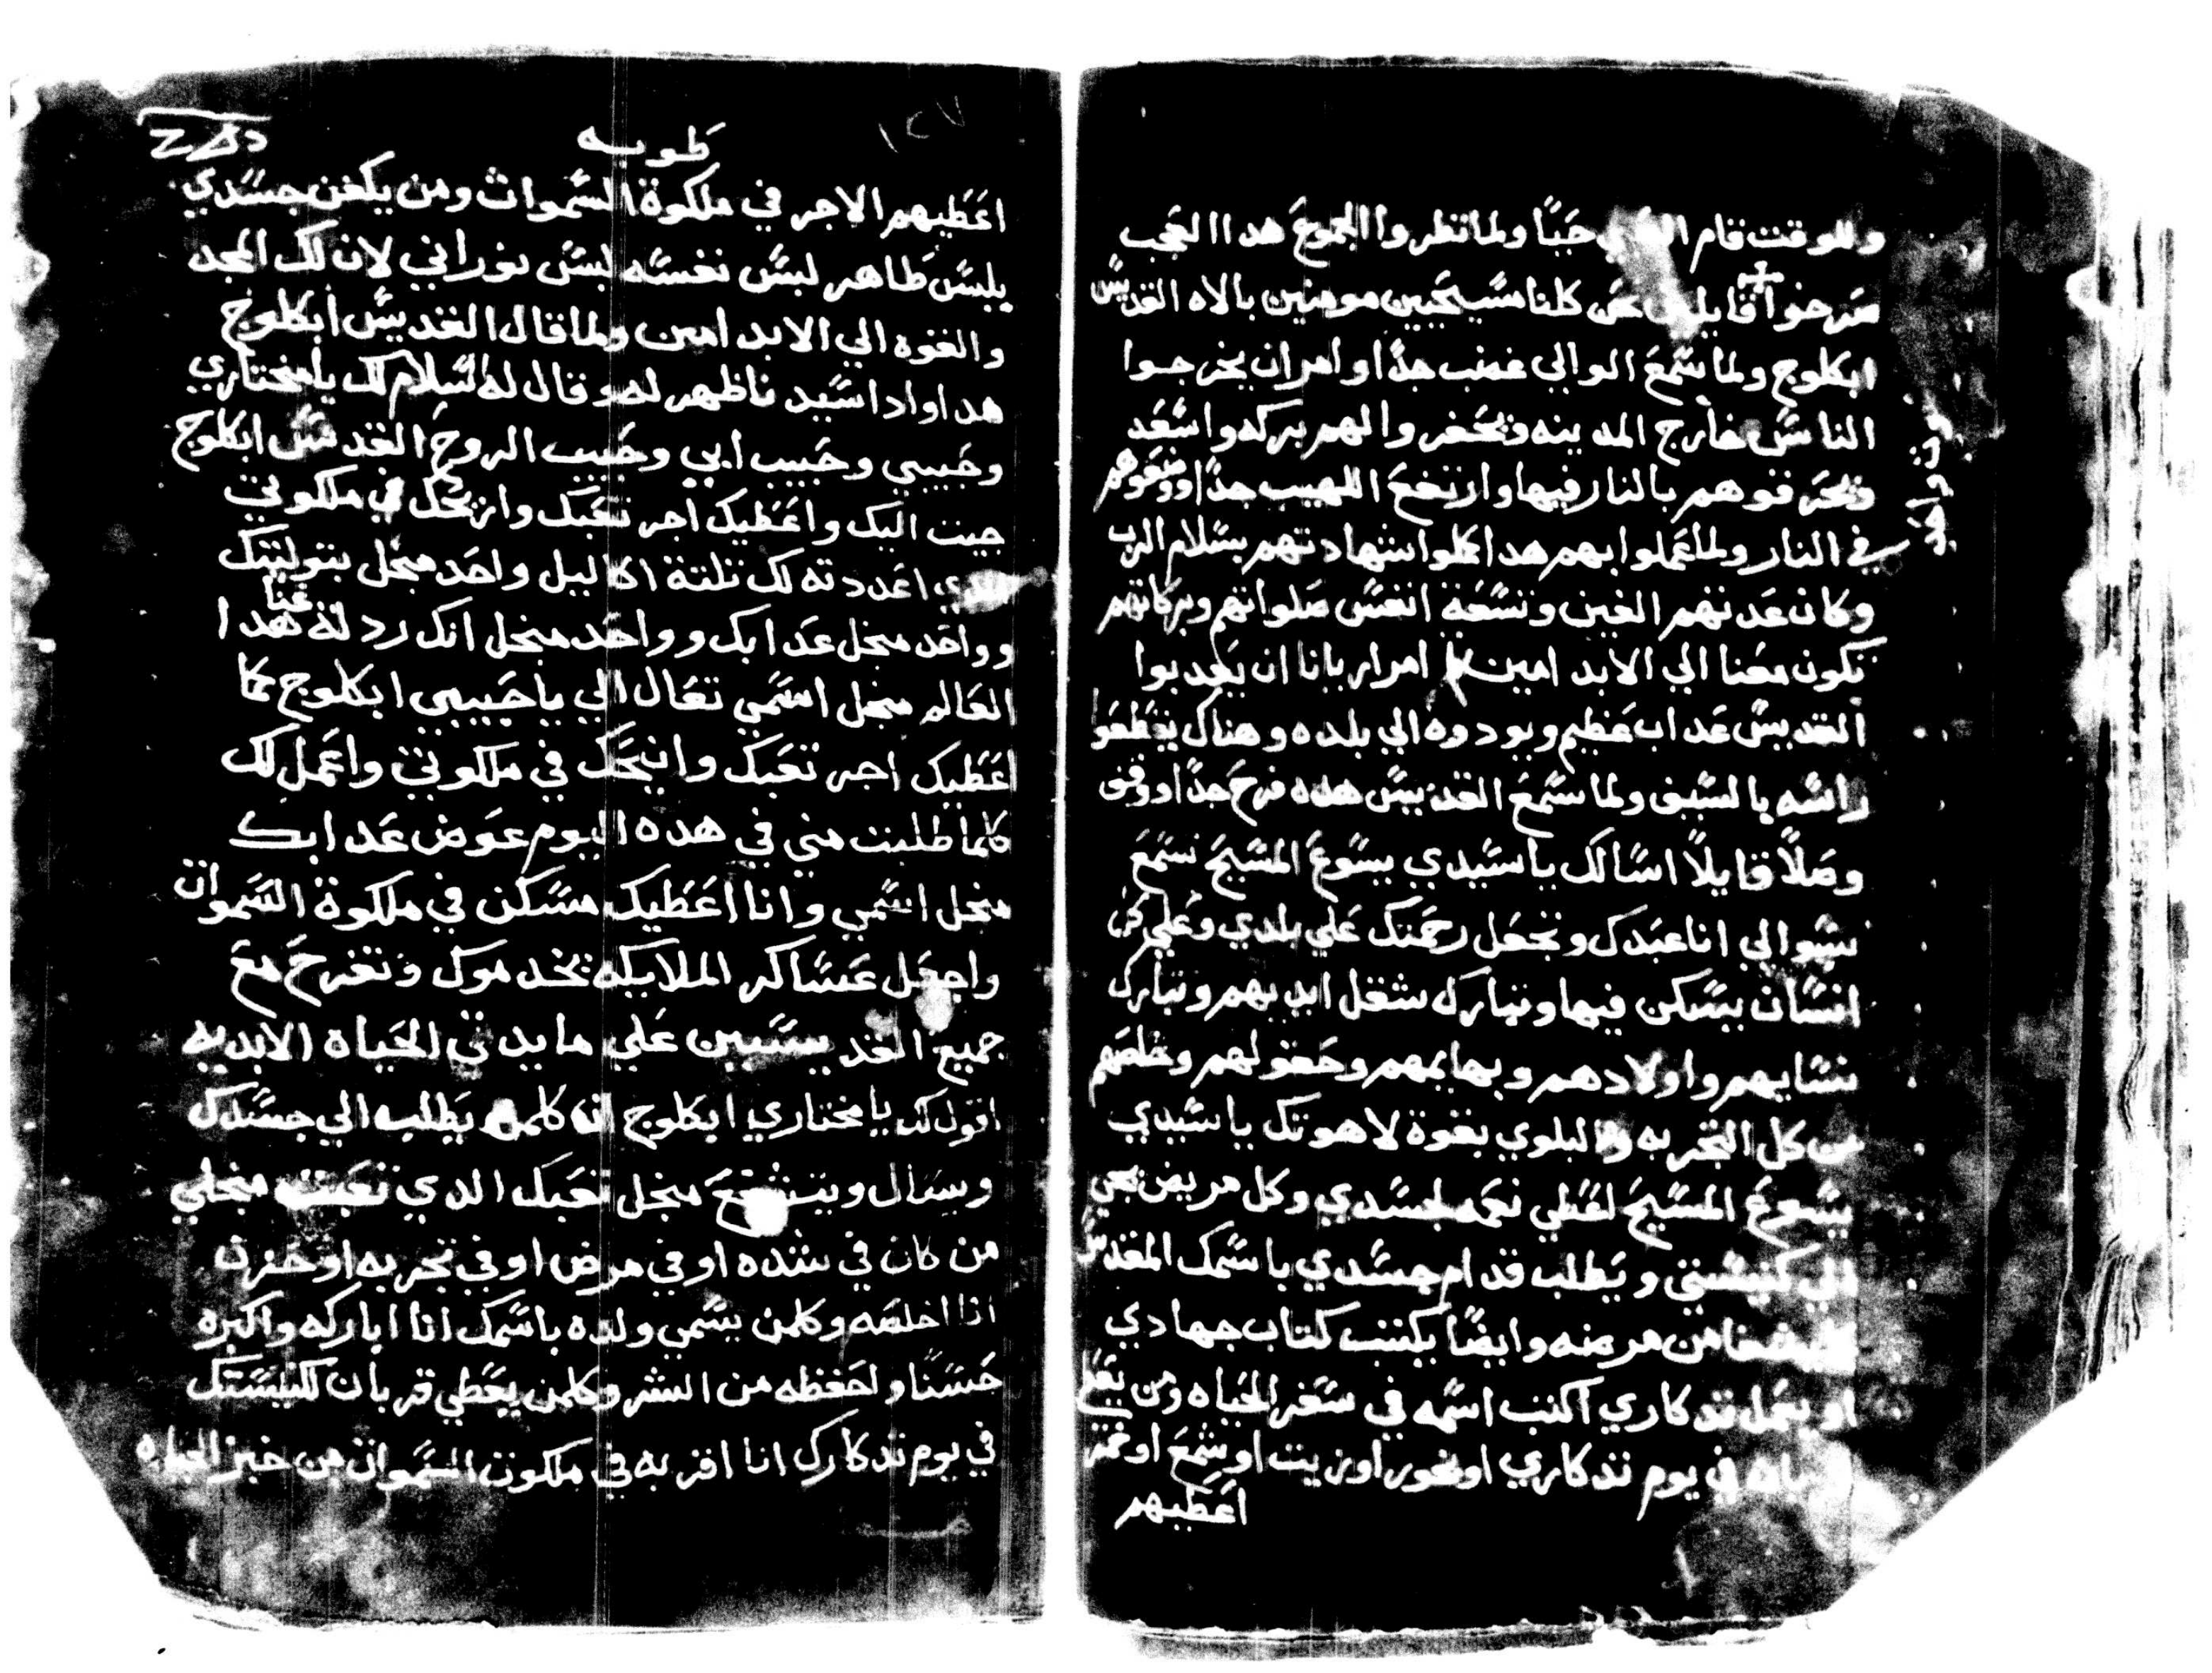 وللوقت قام حيًا ولما نظروا الجموع هدا العجب
صرخوا قايلين نحن كلنا مسيحيين مومنين بالاه القديس
ابكلوج ولما سمع الوالي غضب جدًا وامر ان يخرجوا
الناس خارج المدينه ويحفروا لهم بركه واسعه
ويحرقوهم بالنار فيها وارتفع اللهيب جدًا ووضعوهم
في النار ولما عملوا بهم هدا اكملوا شهادتهم بسلام الرب
وكان عدتهم الفين وتسعة انفس صلواتهم وبركاتهم
تكون معنا الي الابد امين امر اريانا ان يعدبوا
القديس عداب عظيم ويودوه الي بلده وهناك يقطعوا
راسه بالسيف ولما سمع القديس هده فرح جدًا ووقف
وصلًا قايلًا اسالك يا سيدي يسوع المسيح تسمع
سوالي انا عبدك وتجعل رحمتك علي بلدي وعلي كل
انسان يسكن فيها وتبارك شغل ايديهم وتبارك
نسايهم واولادهم وبهايمهم وحقولهم وخلصهم
من كل التجربه والبلوي بقوة لاهوتك يا سيدي
يسوع المسيح تعطي نعمه لجسدي وكل مريض يجي
الي كنيستي ويطلب قدام جسدي باسمك المقدس
من مرضه وايضًا يكتب كتاب جهادي
او يعمل تدكاري اكتب اسمه في سفر الحياه ومن يعطي
في يوم تدكاري او بخور او زيت او شمع او خمر
اعطيهم
١٢٧
طوبه
اعطيهم الاجر في ملكوة السموات ومن يكفن جسدي
بلبس طاهر لبس نفسه لبس نوراني لان لك المجد
والقوه الي الابد امين ولما قال القديس ابكلوج
هدا واد اسيد ناظهر له وقال له السلام لك يا مختاري
وحبيبي وحبيب ابي وحبيب الروح القدس ابكلوج
جيت اليك واعطيك اجر تعبك وانيحك في ملكوتي
اعددته لك تلتة اكاليل واحد منجل بتوليتك
وواحد منجل عدابك وواحد منجل انك ردلة عنا هدا
العالم منجل اسمي تعال الي يا حبيبي ابكلوج كما
اعطيك اجر تعبك وانيحك في ملكوتي واعمل لك
كلما طلبت مني في هده اليوم عوض عدابك
منجل اسمي وانا اعطيك مسكن في ملكوة السموات
واجعل عساكر الملايكه يخدموك وتفرح مع
جميع القديسيين علي مايدتي الحياه الابديه
اقول لك يا مختاري ابكلوج ان كلمن يطلب الي جسدك
ويسال ويتشفع منجل تعبك الدي تعبت منجلي
من كان في شده او في مرض او في تجربه او حزن
انا اخلصه وكلمن يسمي ولده باسمك انا اباركه واكبره
حسنًا واحفظه من الشر وكلمن يعطي قربان لكنيستك
في يوم تدكارك انا اقربه في ملكوت السموات من خبز الحياه